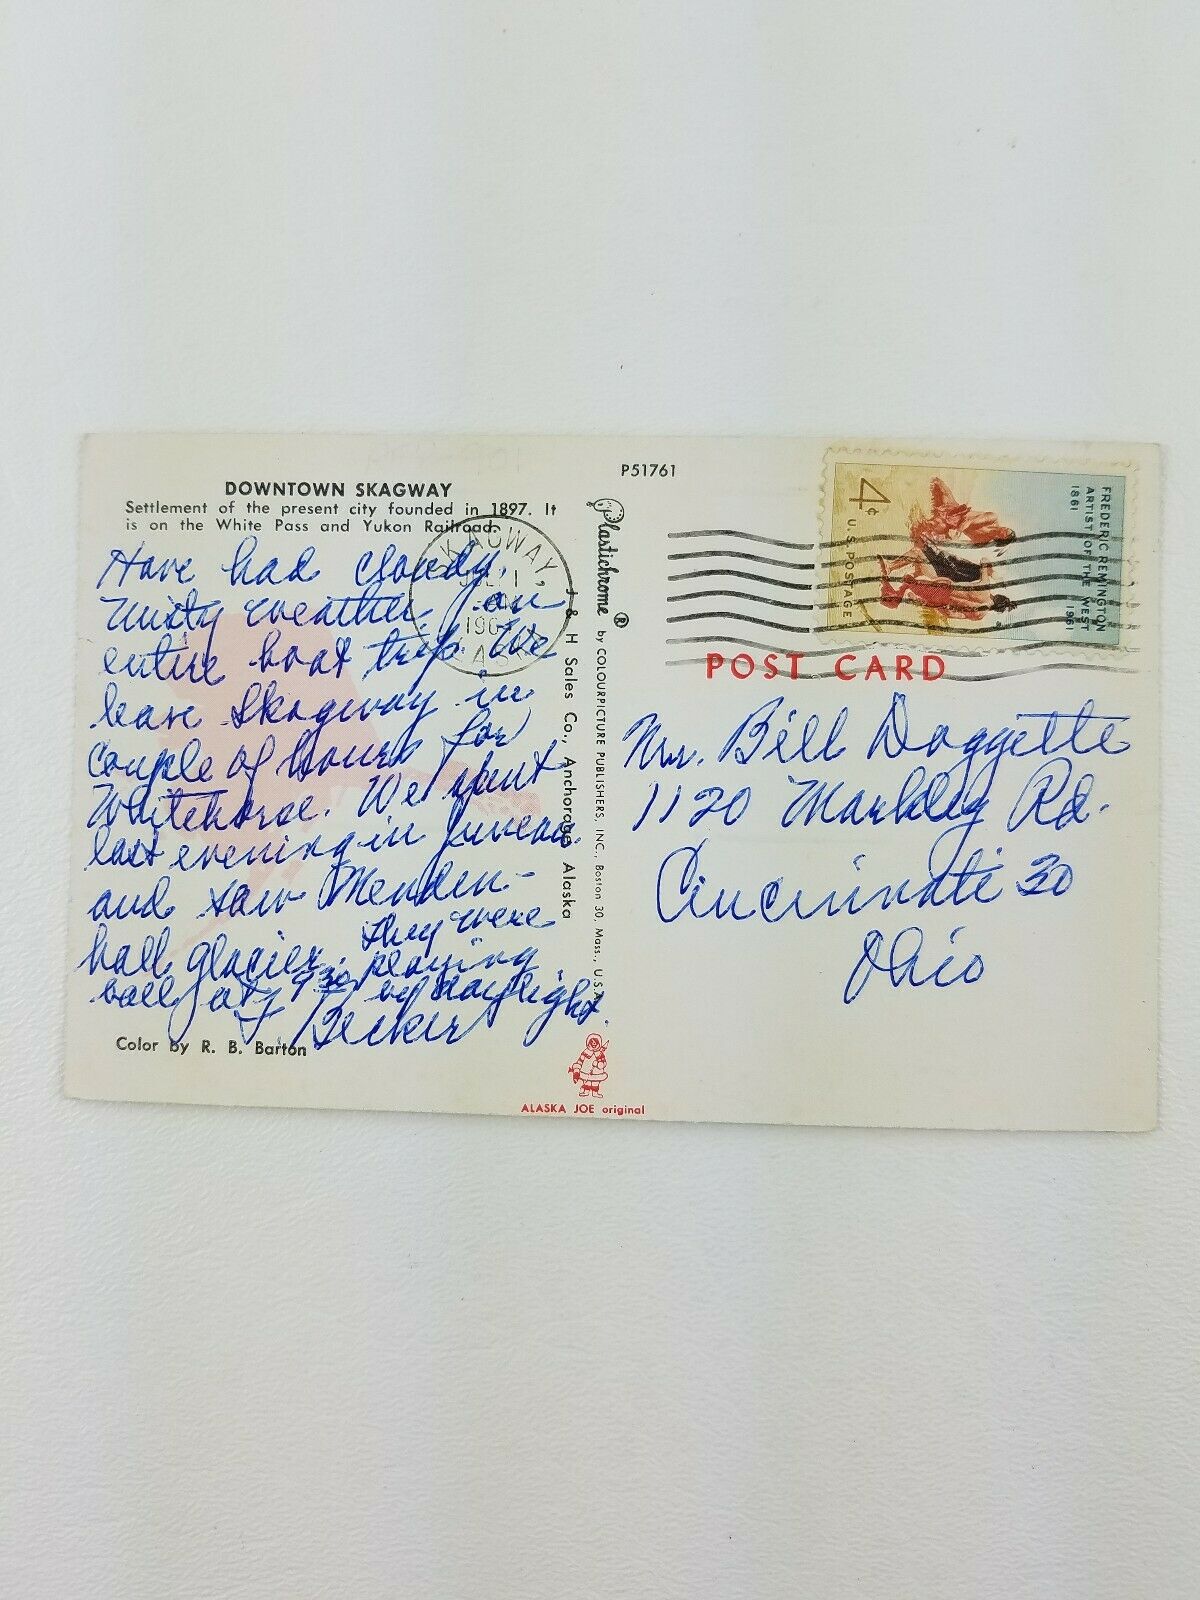 DOWNTOWN SKAGWAY
Settlement of the present city founded in 1897. It
is on the White Pass and Yukon Railroad.
Have had cloudy,
misty weather on
entire boat trip. We
leave Skagway in
couple of hours for
Whitehorse. We spent
last evening in Juneau
and saw Menden-
hall glacier. They were
playing
ball at 9 30 by daylight.
J. Becker
Color by R. B. Barton
SKAGWAY,
JUL
196
J & H Sales Co., Anchorage, Alaska
Plastichrome ® by COLOURPICTURE PUBLISHERS, INC., Boston 30, Mass., U.S.A.
ALASKA JOE original
P51761
4¢
U.S. POSTAGE
FREDERIC REMINGTON
ARTIST OF THE WEST
1861 1961
POST CARD
Mr. Bill Doggette
1120 Markley Rd.
Cincinnati 30
Ohio